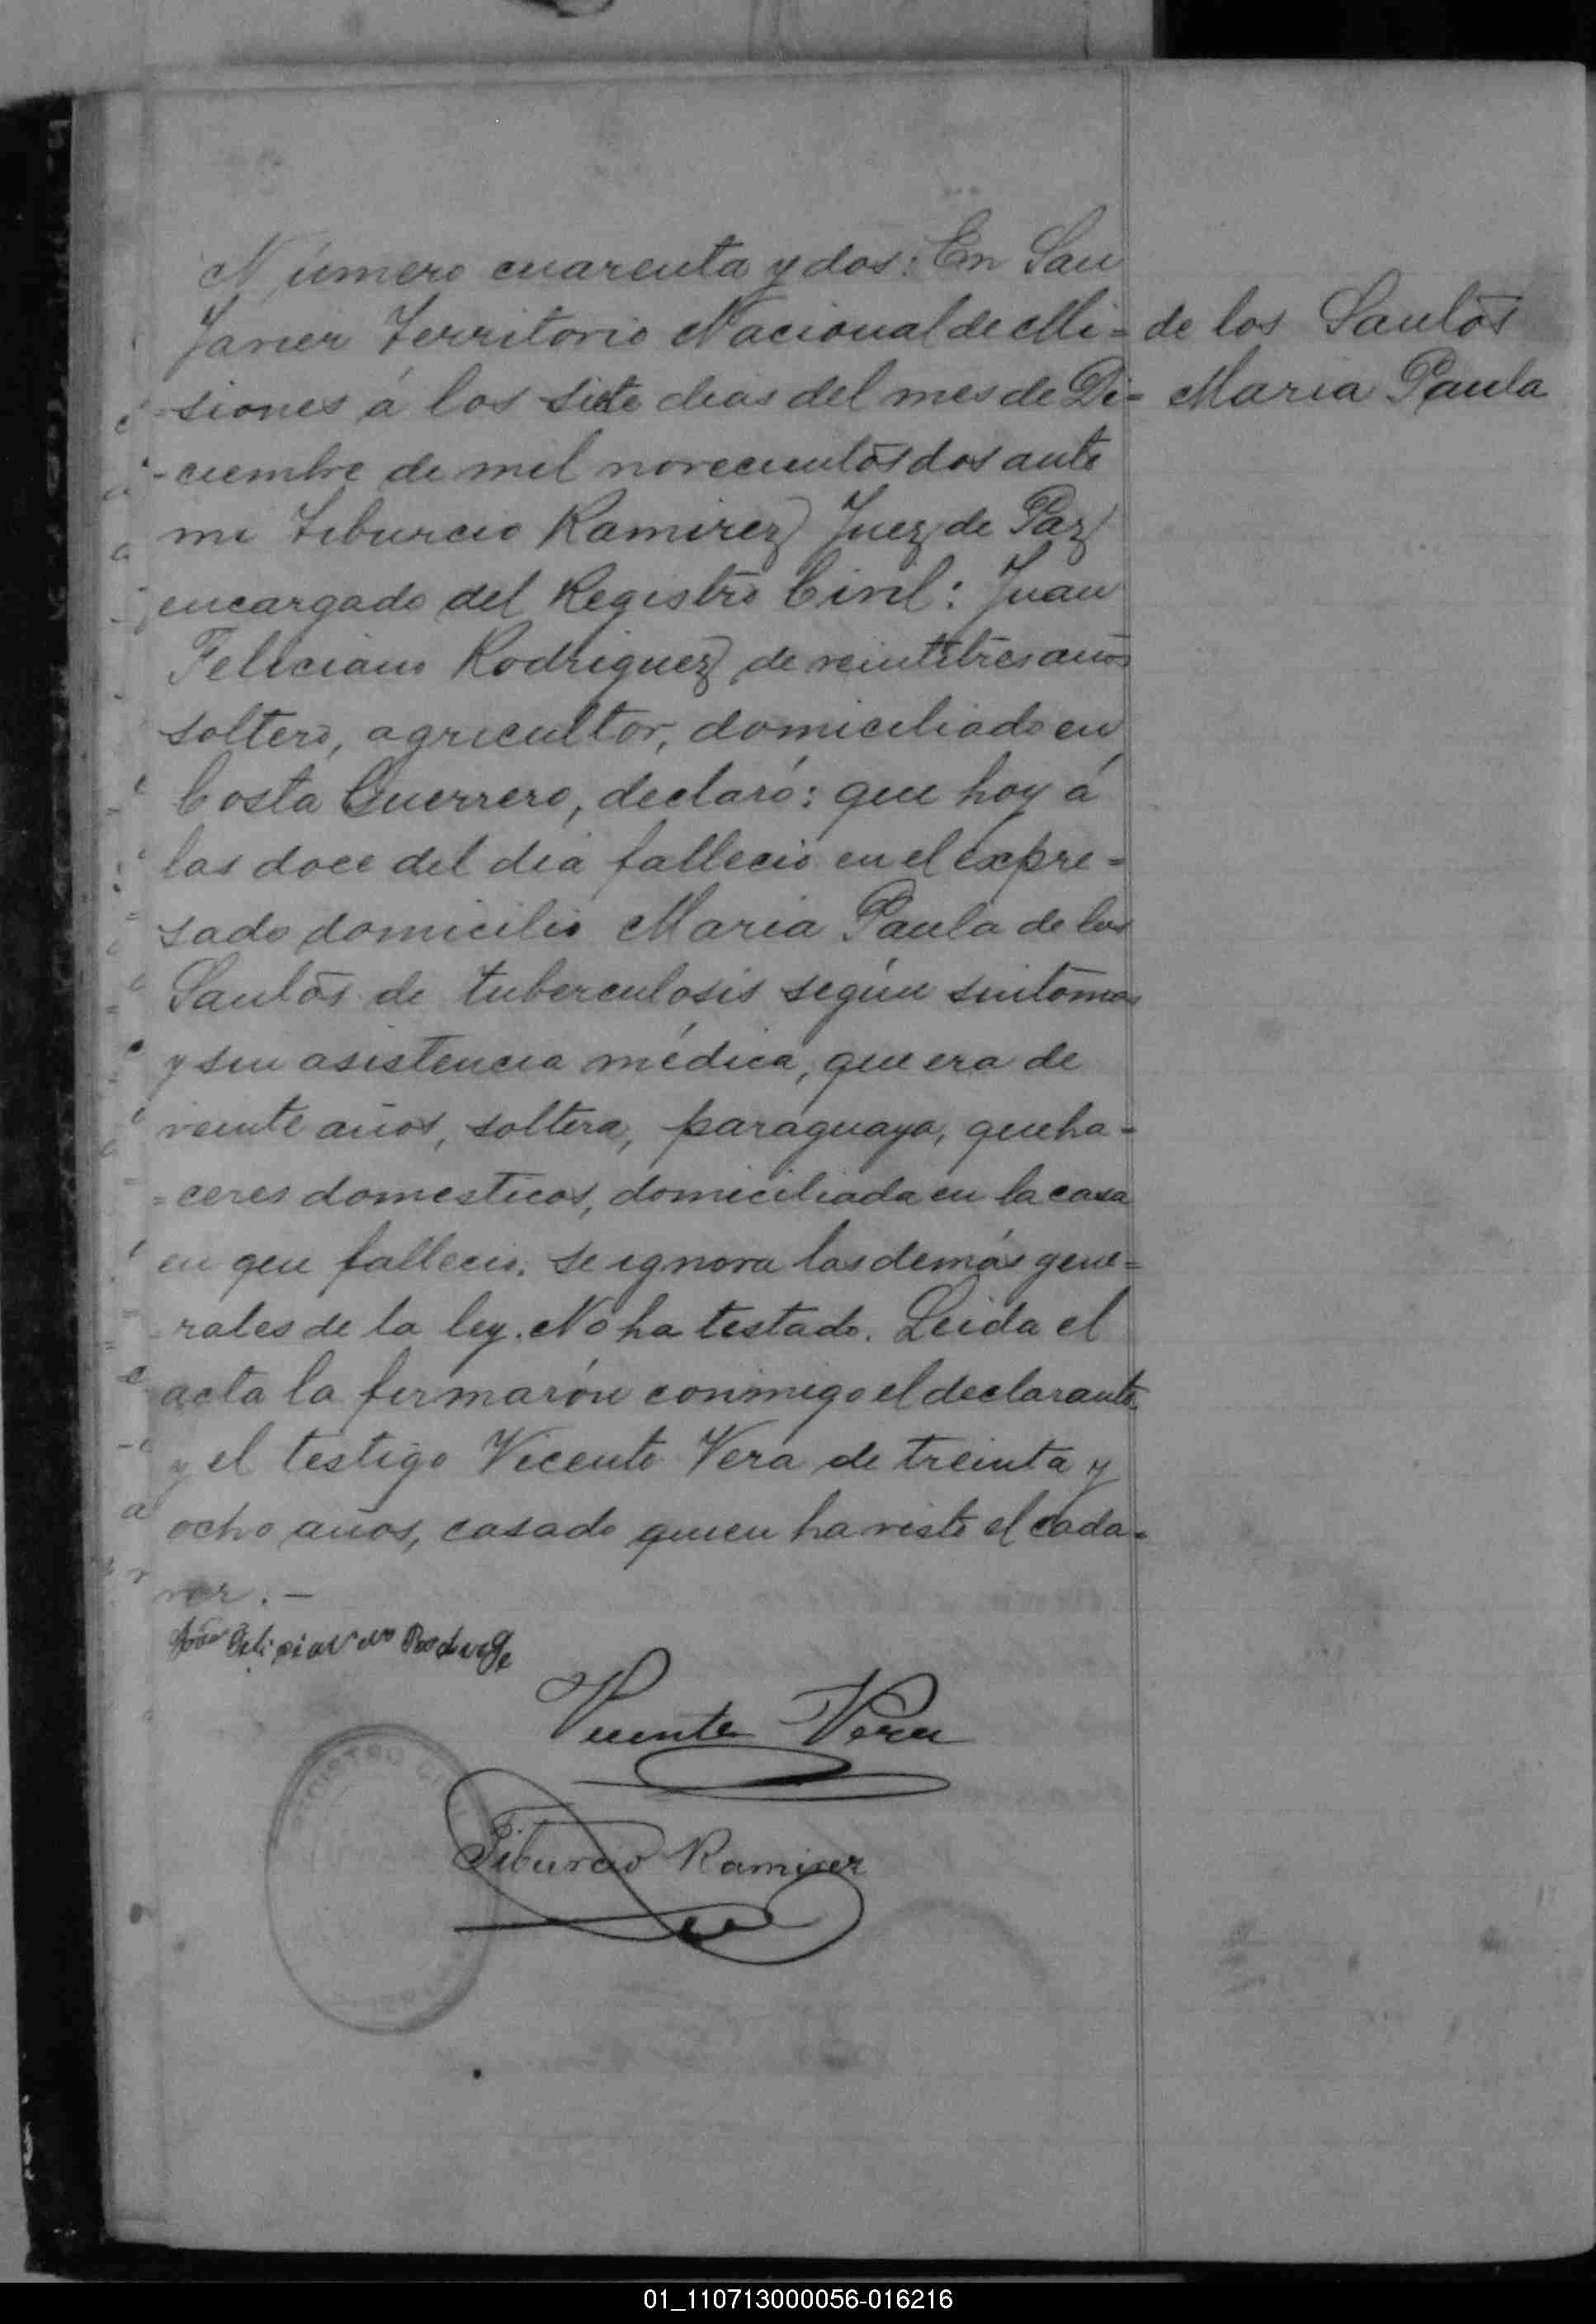 Número cuarenta y dos: En San
Javier Territorio Nacional de Mi=
siones á los siete dias del mes de Di=
-ciembre de mil novecientos dos ante
mi Tiburcio Ramirez Juez de Paz
encargado del Registro Civil: Juan
Feliciano Rodriguez de veintitres años
soltero, agricultor, domiciliado en
Costa Guerrero, declaró: que hoy á
las doce del dia fallecio en el expre=
sado domicilio Maria Paula de los
Santos de tuberculosis según sintomas
y sin asistencia médica, que era de
veinte años, soltera, paraguaya, queha=
=ceres domesticos, domiciliada en la casa
en que fallecio. Se ignora las demás gene=
rales de la ley. No ha testado. Leida el
acta la firmarón conmigo el declarante
y el testigo Vicente Vera de treinta y
ocho años, casado quien ha visto el cada=
ver. —
de los Santos
Maria Paula
Vicente Vera
REGISTRO
Tiburcio Ramirez
01_110713000056-016216